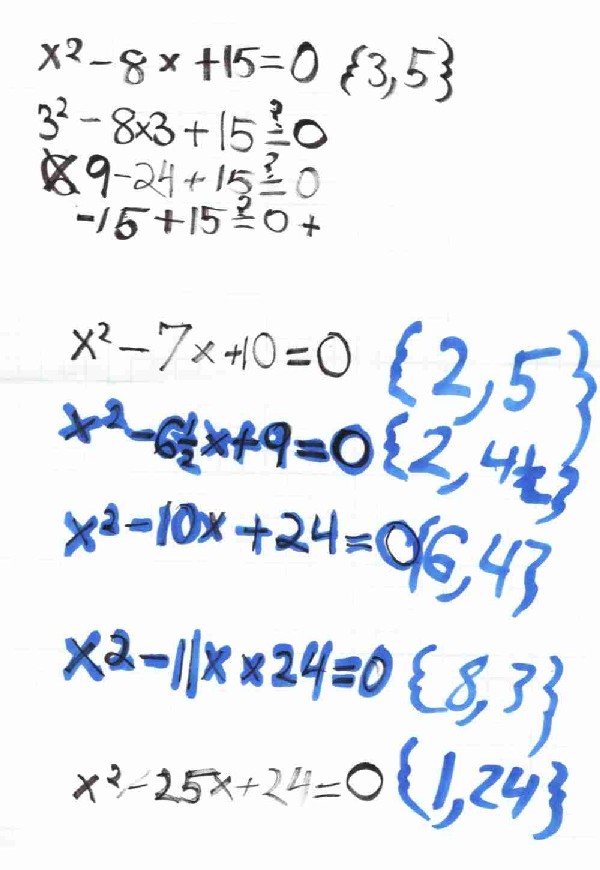 x² - 8x + 15 = 0 {3,5}
3² - 8x3 + 15 ≟ 0
9 - 24 + 15 ≟ 0
-15 + 15 ≟ 0 +
x² - 7x + 10 = 0 {2,5}
x² - 6½x + 9 = 0 {2,4½}
x² - 10x + 24 = 0 {6,4}
x² - 11x x 24 = 0 {8,3}
x² - 25x + 24 = 0 {1,24}